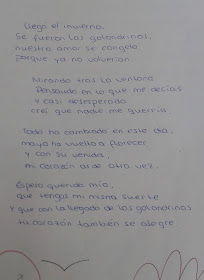 Llegó el invierno.
Se fueron las golondrinas,
nuestro amor se congeló
porque ya no volverían.
Mirando tras la ventana
Pensando en lo que me decías
y casi desesperada
creí que nadie me querría
Todo ha cambiado en este día,
mayo ha vuelto a florecer
y con su venida,
mi corazón arde otra vez.
Espero querido mío,
que tengas mi misma suerte
y que con la llegada de las golondrinas
tu corazón también se alegre